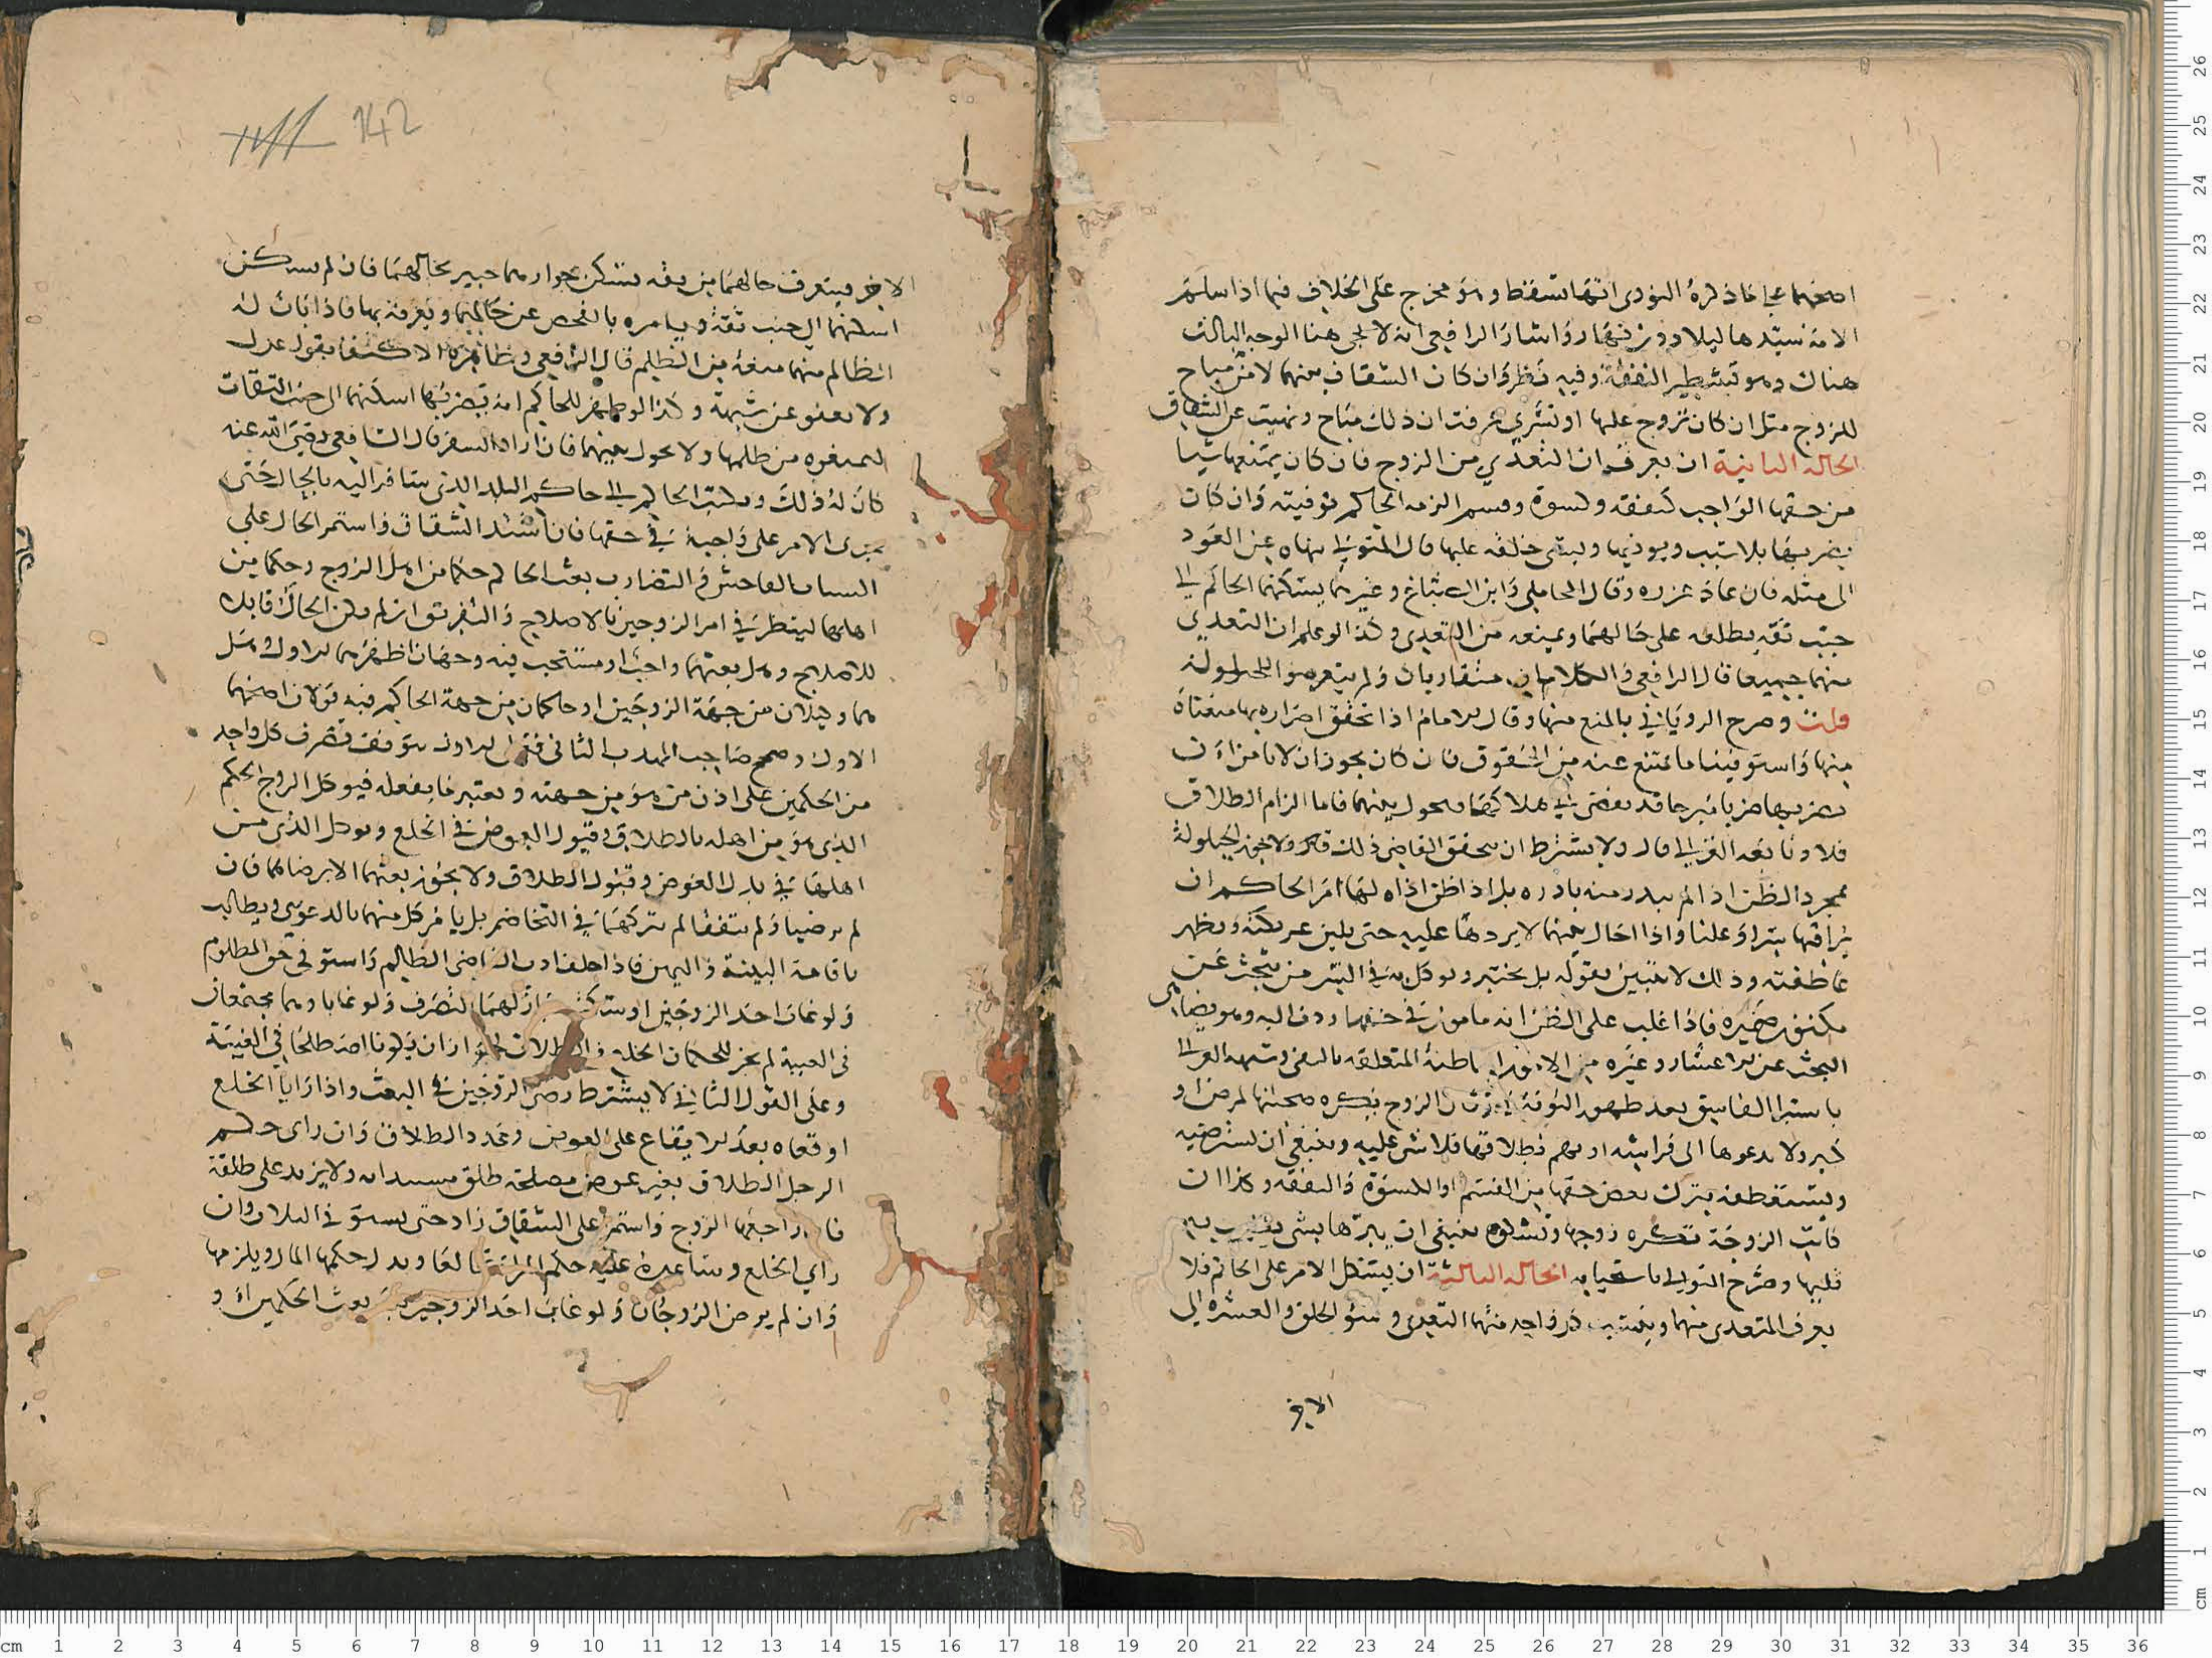 اصحهما على ما ذكره النووى انها تسقط وهو مخرج على الخلاف فيما اذا سلم
الامة سيدها ليلا دون نهار واشار الرافعى انه لا يجى هنا الوجه الثالث
هناك وهو تشطير النفقة وفيه نظر وان كان الشقاق منهما لامر مباح
للزوج مثل ان كان تزوج عليها او تسرى عرفت ان ذلك مباح ونهيت عن الشقاق
الحالة الثانية ان يعرف ان التعدي من الزوج فان كان يمنعها شيا
من حقها الواجب كنفقة وكسوة وقسم الزمه الحاكم توفيته وان كان
يضربها بلا سبب ويوذيها ويسى خلقه عليها قال المتولى ينهاه عن العود
الى مثله فان عاد عزره وقال المحاملى وابن الصباغ وغيرهما يسكنهما الحاكم الى
جنب ثقة يطلع على حالهما ويمنعه من التعدى وكذا لو علم ان التعدي
منهما جميعا قال الرافعى والكلامان متقاربان ولم يتعرضوا للحيلولة
قلت وصرح الرويانى بالمنع منها وقال الامام اذا تحقق اضراره بها منعناه
منها واستوفينا ما يمتنع عنه من الحقوق فان كان يجوز ان لا نامن ان
يضربها ضربا مبرحا قد يفضى الى هلاكها فيحول بينهما فاما الزام الطلاق
فلا وتابعه الغزالى قال ولا يشترط ان يتحقق القاضى ذلك ولا يجوز الحيلولة
بمجرد الظن اذا لم يبدر منه بادره بل اذا ظن اذاه لها امر الحاكم ان
يراقبها سرا وعلنا واذا احال بينهما لا يردها عليه حتى يلين عريكته ويظهر
عاطفته وذلك لا يتبين بقوله بل يختبر ويوكل به فى السر من يبحث عن
مكنون ضميره فاذا غلب على الظن انه مامون فى حقها ردت اليه وهو يضاهى
البحث عن الاعسار وغيره من الامور الباطنة المتعلقة بالنفى وشبهه الغزالى
باستبرا الفاسق بعد ظهور التوبة وان كان الزوج يكره صحبتها لمرض او
كبر ولا يدعوها الى فراشه او يهم بطلاقها فلا شى عليه وينبغى ان تسترضيه
وتستعطفه بترك بعض حقها من القسم او الكسوة والنفقة وكذا ان
كانت الزوجة تكره زوجها وتشكوه ينبغى ان يبرها بشى يطيب به
قلبها وصرح المتولى باستحبابه الحالة الثالثة ان يشكل الامر على الحاكم فلا
يعرف المتعدى منهما وينسب كل واحد منهما التعدى وسوء الخلق والعشرة الى
الاخر
142
الاخر فيتعرف حالهما من ثقة يسكن بجوارهما خبير بحالهما فان لم يسكن
اسكنهما الى جنب ثقة ويامره بالفحص عن حالهما ويعرفه بها فاذا بان له
الظالم منهما منعه من الظلم قال الرافعى وظاهره الاكتفا بقول عدل
ولا يعفو عن شبهة وكذا لو ظهر للحاكم انه يضربها اسكنهما الى جنب الثقات
ليمنعوه من ظلمها ولا يحول بينهما فان اراد السفر قال الشافعى رضى الله عنه
كان له ذلك ويكتب الحاكم الى حاكم البلد الذى سافر اليه بالحال حتى
يجرى الامر على واجبه فى حقها فان اشتد الشقاق واستمر الحال على
السباب الفاحش والتضارب بعث الحاكم حكما من اهل الزوج وحكما من
اهلها لينظر فى امر الزوجين بالاصلاح والتفريق ان لم يكن الحال قابلا
للاصلاح وهل بعثهما واجب او مستحب فيه وجهان اظهرهما الاول وهل
هما وكيلان من جهة الزوجين او حاكمان من جهة الحاكم فيه قولان اصحهما
الاول وصحح صاحب المهذب الثانى فعلى الاول يتوقف تصرف كل واحد
من الحكمين على اذن من هو من جهته ويعتبر ما يفعله فيوكل الزوج الحكم
الذى هو من اهله بالطلاق وقبول العوض فى الخلع وتوكل الذى من
اهلها فى بذل العوض وقبول الطلاق ولا يجوز بعثهما الا برضاهما فان
لم يرضيا ولم يتفقا لم يتركهما فى التخاصم بل يامر كل منهما بالدعوى ويطالب
باقامة البينة واليمين فاذا حلف ادب القاضى الظالم واستوفى حق المظلوم
ولو غاب احد الزوجين او سكت جاز لهما التصرف ولو غابا وهما مجتمعان
فى الغيبة لم يجز للحكمين الخلع والطلاق لجواز ان يكونا اصطلحا فى الغيبة
وعلى القول الثانى لا يشترط رضى الزوجين فى البعث واذا رايا الخلع
اوقعاه بعد الايقاع على العوض وعدد الطلاق وان راى حكم
الرجل الطلاق بغير عوض مصلحة طلق ولا يزيد على طلقة
فان راجعها الزوج واستمر على الشقاق زاد حتى يستوفى الثلاث وان
راي الخلع وساعده عليه حكم المراة تخالعا وبذل حكمها المال ويلزمها
وان لم يرض الزوجان ولو غاب احد الزوجين بعد بعث الحكمين او